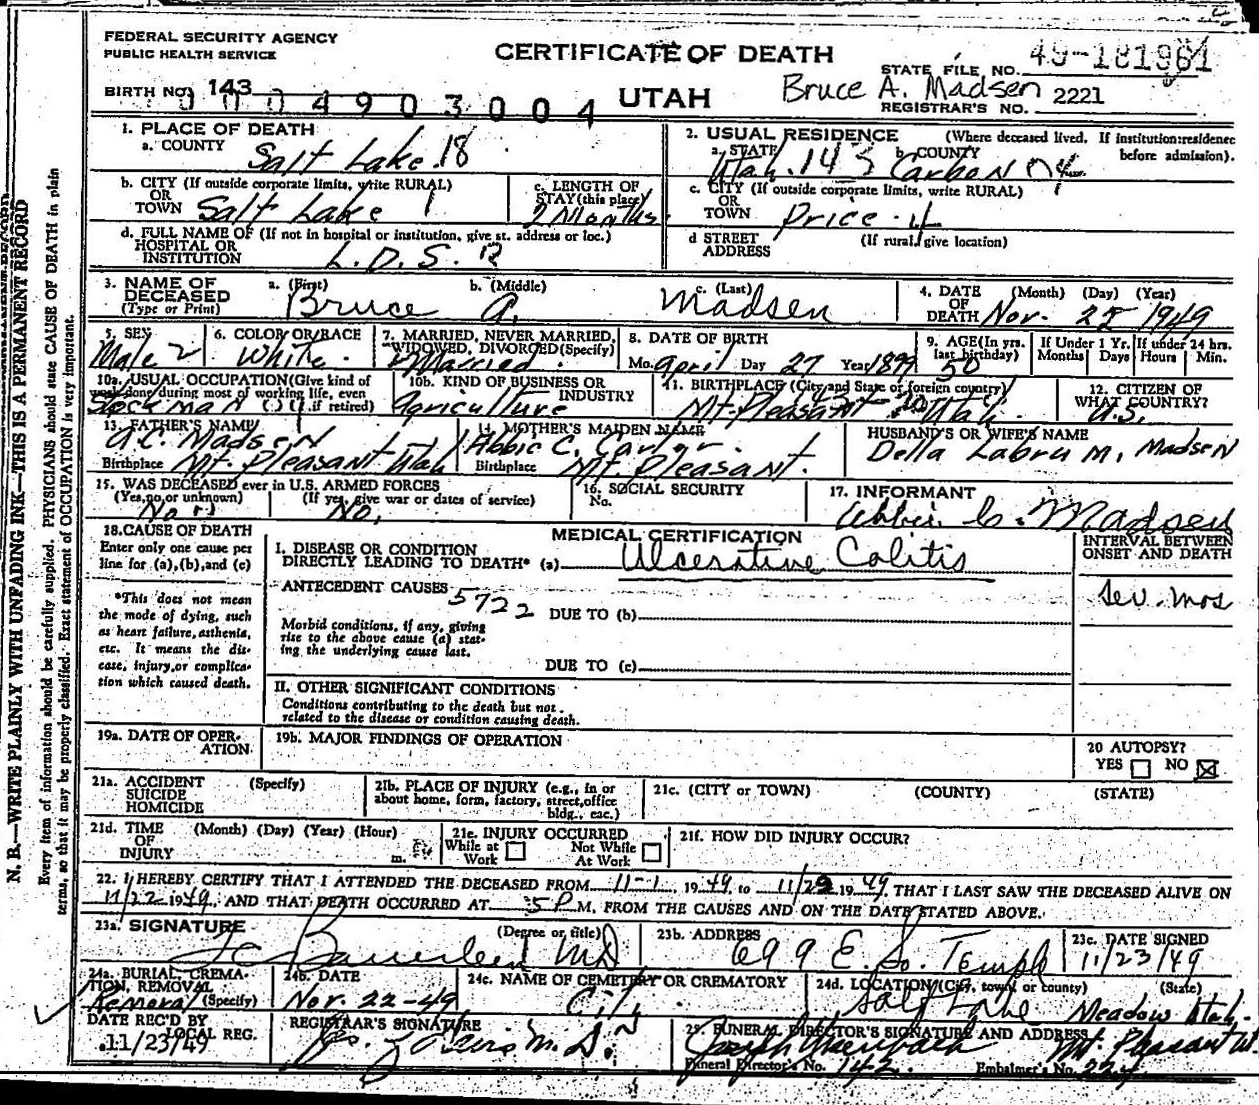 FEDERAL SECURITY AGENCY
PUBLIC HEALTH SERVICE
CERTIFICATE OF DEATH
STATE FILE NO. 49-181961
BIRTH NO. 143
0004903004
UTAH
Bruce A. Madsen
REGISTRAR'S NO. 2221
1. PLACE OF DEATH
a. COUNTY Salt Lake 18
2. USUAL RESIDENCE (Where deceased lived. If institution: residence before admission).
a. STATE Utah. 14 b. COUNTY Carbon 04
b. CITY (If outside corporate limits, write RURAL) OR TOWN Salt Lake 1
c. LENGTH OF STAY (this place) 2 Months
c. CITY (If outside corporate limits, write RURAL) OR TOWN Price 4
d. FULL NAME OF (If not in hospital or institution, give st. address or loc.) HOSPITAL OR INSTITUTION L.D.S.
d STREET ADDRESS (If rural, give location)
3. NAME OF DECEASED (Type or Print)
a. (First) Bruce b. (Middle) A. c. (Last) Madsen
4. DATE OF DEATH (Month) (Day) (Year) Nov. 22 1949
5. SEX Male 2
6. COLOR OR RACE White
7. MARRIED, NEVER MARRIED, WIDOWED, DIVORCED (Specify) Married
8. DATE OF BIRTH Mo. April Day 27 Year 1899
9. AGE (In yrs. last birthday) 50
If Under 1 Yr. Months Days
If under 24 hrs. Hours Min.
10a. USUAL OCCUPATION (Give kind of work done during most of working life, even if retired) Stockman
10b. KIND OF BUSINESS OR INDUSTRY Agriculture
11. BIRTHPLACE (City and State or foreign country) Mt. Pleasant Utah.
12. CITIZEN OF WHAT COUNTRY? U.S.
13. FATHER'S NAME A.C. Madsen
Birthplace Mt. Pleasant Utah
14. MOTHER'S MAIDEN NAME Abbie C.
Birthplace Mt. Pleasant.
HUSBAND'S OR WIFE'S NAME
Della Labrum. Madsen
15. WAS DECEASED ever in U.S. ARMED FORCES
(Yes, no, or unknown) No
(If yes, give war or dates of service) No.
16. SOCIAL SECURITY No.
17. INFORMANT
Abbie C. Madsen
18. CAUSE OF DEATH
Enter only one cause per line for (a), (b), and (c)
*This does not mean the mode of dying, such as heart failure, asthenia, etc. It means the disease, injury, or complication which caused death.
MEDICAL CERTIFICATION
I. DISEASE OR CONDITION DIRECTLY LEADING TO DEATH* (a) Ulcerative Colitis
INTERVAL BETWEEN ONSET AND DEATH
Sev. mos
ANTECEDENT CAUSES 5722
DUE TO (b)
Morbid conditions, if any, giving rise to the above cause (a) stating the underlying cause last.
DUE TO (c)
II. OTHER SIGNIFICANT CONDITIONS
Conditions contributing to the death but not related to the disease or condition causing death.
19a. DATE OF OPERATION
19b. MAJOR FINDINGS OF OPERATION
20 AUTOPSY?
YES NO
21a. ACCIDENT SUICIDE HOMICIDE (Specify)
21b. PLACE OF INJURY (e.g., in or about home, form, factory, street, office bldg., eac.)
21c. (CITY or TOWN) (COUNTY) (STATE)
21d. TIME OF INJURY (Month) (Day) (Year) (Hour) m.
21e. INJURY OCCURRED While at Work Not While At Work
21f. HOW DID INJURY OCCUR?
22. I HEREBY CERTIFY THAT I ATTENDED THE DECEASED FROM 11-1 1949 to 11/22 1949 THAT I LAST SAW THE DECEASED ALIVE ON
11/22 1949, AND THAT DEATH OCCURRED AT 5 P M, FROM THE CAUSES AND ON THE DATE STATED ABOVE.
23a. SIGNATURE (Degree or title) MD
23b. ADDRESS 699 E. So. Temple
23c. DATE SIGNED 11/23/49
24a. BURIAL, CREMATION, REMOVAL (Specify) Removal
24b. DATE Nov. 22-49
24c. NAME OF CEMETERY OR CREMATORY City
24d. LOCATION (City, town, or county) (State)
Salt Lake Meadow Utah.
DATE REC'D BY LOCAL REG. 11/23/49
REGISTRAR'S SIGNATURE
25. FUNERAL DIRECTOR'S SIGNATURE AND ADDRESS
Mt. Pleasant Ut.
Funeral Director's No. 142 Embalmer's No. 224
N. B.—WRITE PLAINLY WITH UNFADING INK—THIS IS A PERMANENT RECORD
Every item of information should be carefully supplied. PHYSICIANS should state CAUSE OF DEATH in plain
terms, so that it may be properly classified. Exact statement of OCCUPATION is very important.